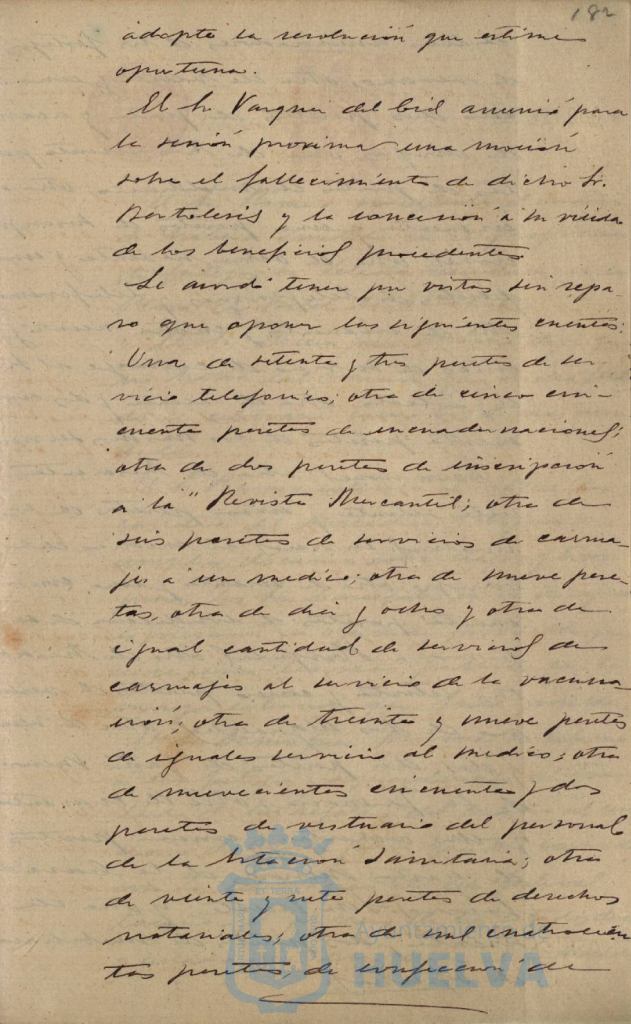 182
adopte la resolución que estime
oportuna.
El Sr Vazquez del Cid anunció para
la sesión proxima una moción
sobre el fallecimiento de dicho Sr.
y la concesión á su viuda
de los beneficios procedentes.
Se acordó tener por vistas sin repa-
ro que oponer las siguientes cuentas:
Una de setenta y tres pesetas de ser
vicio telefonico; otra de cinco cin-
cuenta pesetas de encuadernaciones;
otra de dos pesetas de inscripción
a la "Revista Mercantil; otra de
seis pesetas de servicios de carrua-
jes á un medico; otra de nueve pese-
tas, otra de diez y ocho y otra de
igual cantidad de servicios de
carruajes al servicio de la vacuna-
ción; otra de treinta y nueve pesetas
de iguales servicio al medico; otra
de nuevecientas cincuenta y dos
pesetas de vestuario del personal
de la Estación Sanitaria; otra
de veinte y siete pesetas de derechos
notariales; otra de mil cuatrocien
tas pesetas de confección de
Ayuntamiento de
HUELVA